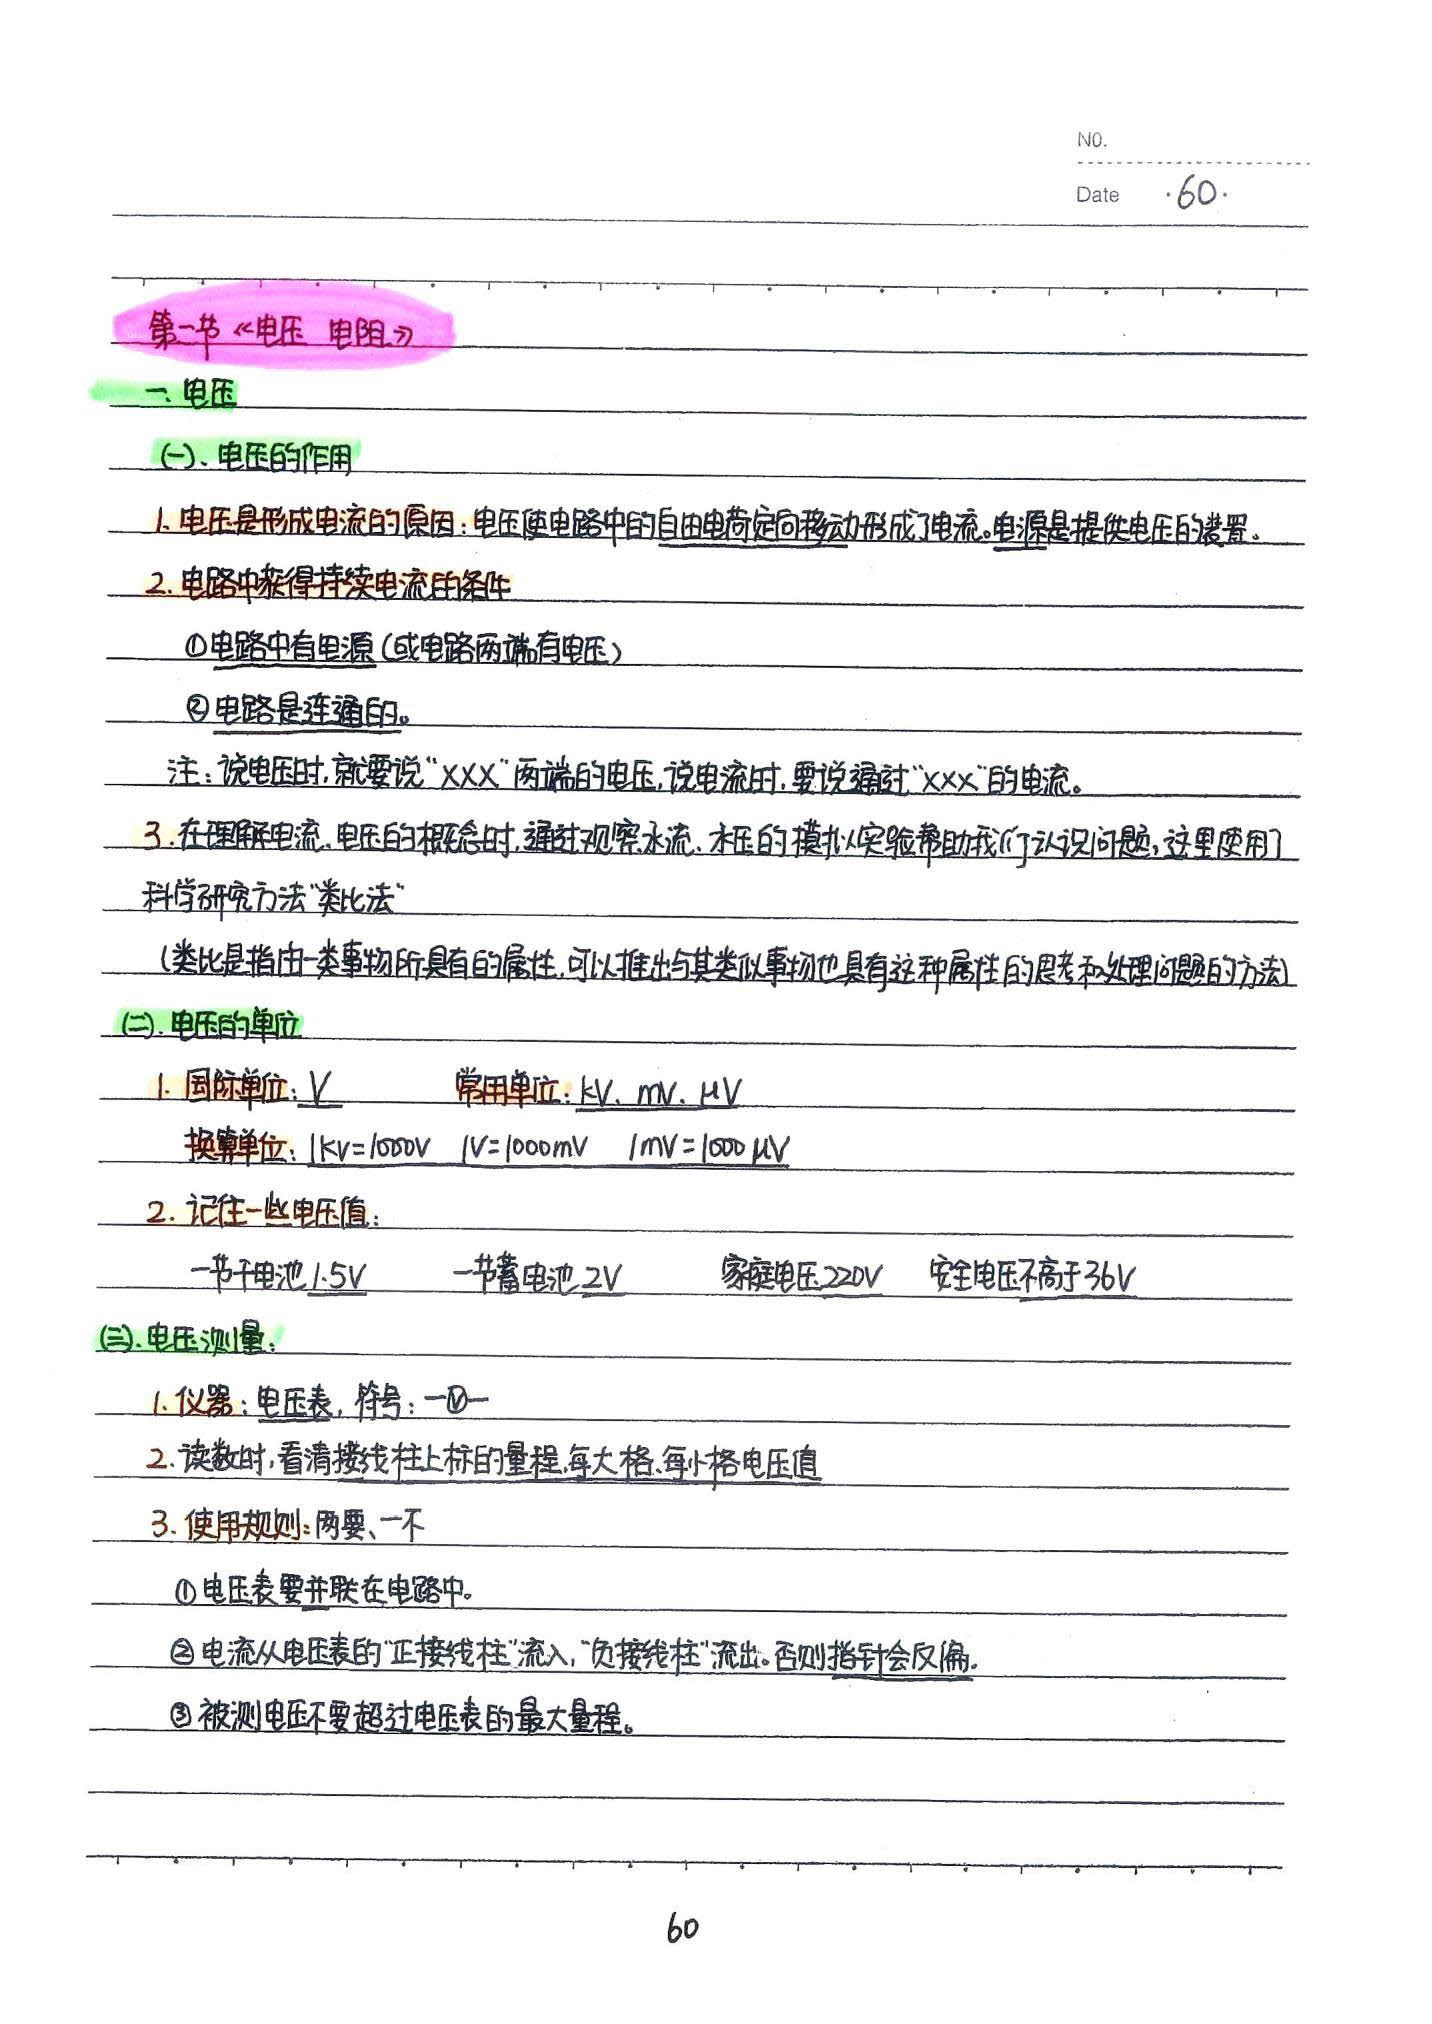 NO.
Date ·60·
第一节《电压 电阻》
一、电压
(一)、电压的作用
1、电压是形成电流的原因：电压使电路中的自由电荷定向移动形成了电流。电源是提供电压的装置。
2、电路中获得持续电流的条件
①电路中有电源(或电路两端有电压)
②电路是连通的。
注：说电压时,就要说“XXX”两端的电压,说电流时,要说通过“XXX”的电流。
3.在理解电流、电压的概念时,通过观察水流、水压的模拟实验帮助我们认识问题,这里使用了
科学研究方法“类比法”
(类比是指由一类事物所具有的属性,可以推出与其类似事物也具有这种属性的思考和处理问题的方法)
(二)、电压的单位
1、国际单位：V 常用单位：kV、mV、μV
换算单位：1kV=1000V 1V=1000mV 1mV=1000μV
2、记住一些电压值：
一节干电池1.5V 一节蓄电池2V 家庭电压220V 安全电压不高于36V
(三)、电压测量：
1、仪器：电压表, 符号：—Ⓥ—
2、读数时,看清接线柱上标的量程,每大格、每小格电压值
3、使用规则：两要、一不
①电压表要并联在电路中。
②电流从电压表的“正接线柱”流入,“负接线柱”流出。否则指针会反偏。
③被测电压不要超过电压表的最大量程。
60